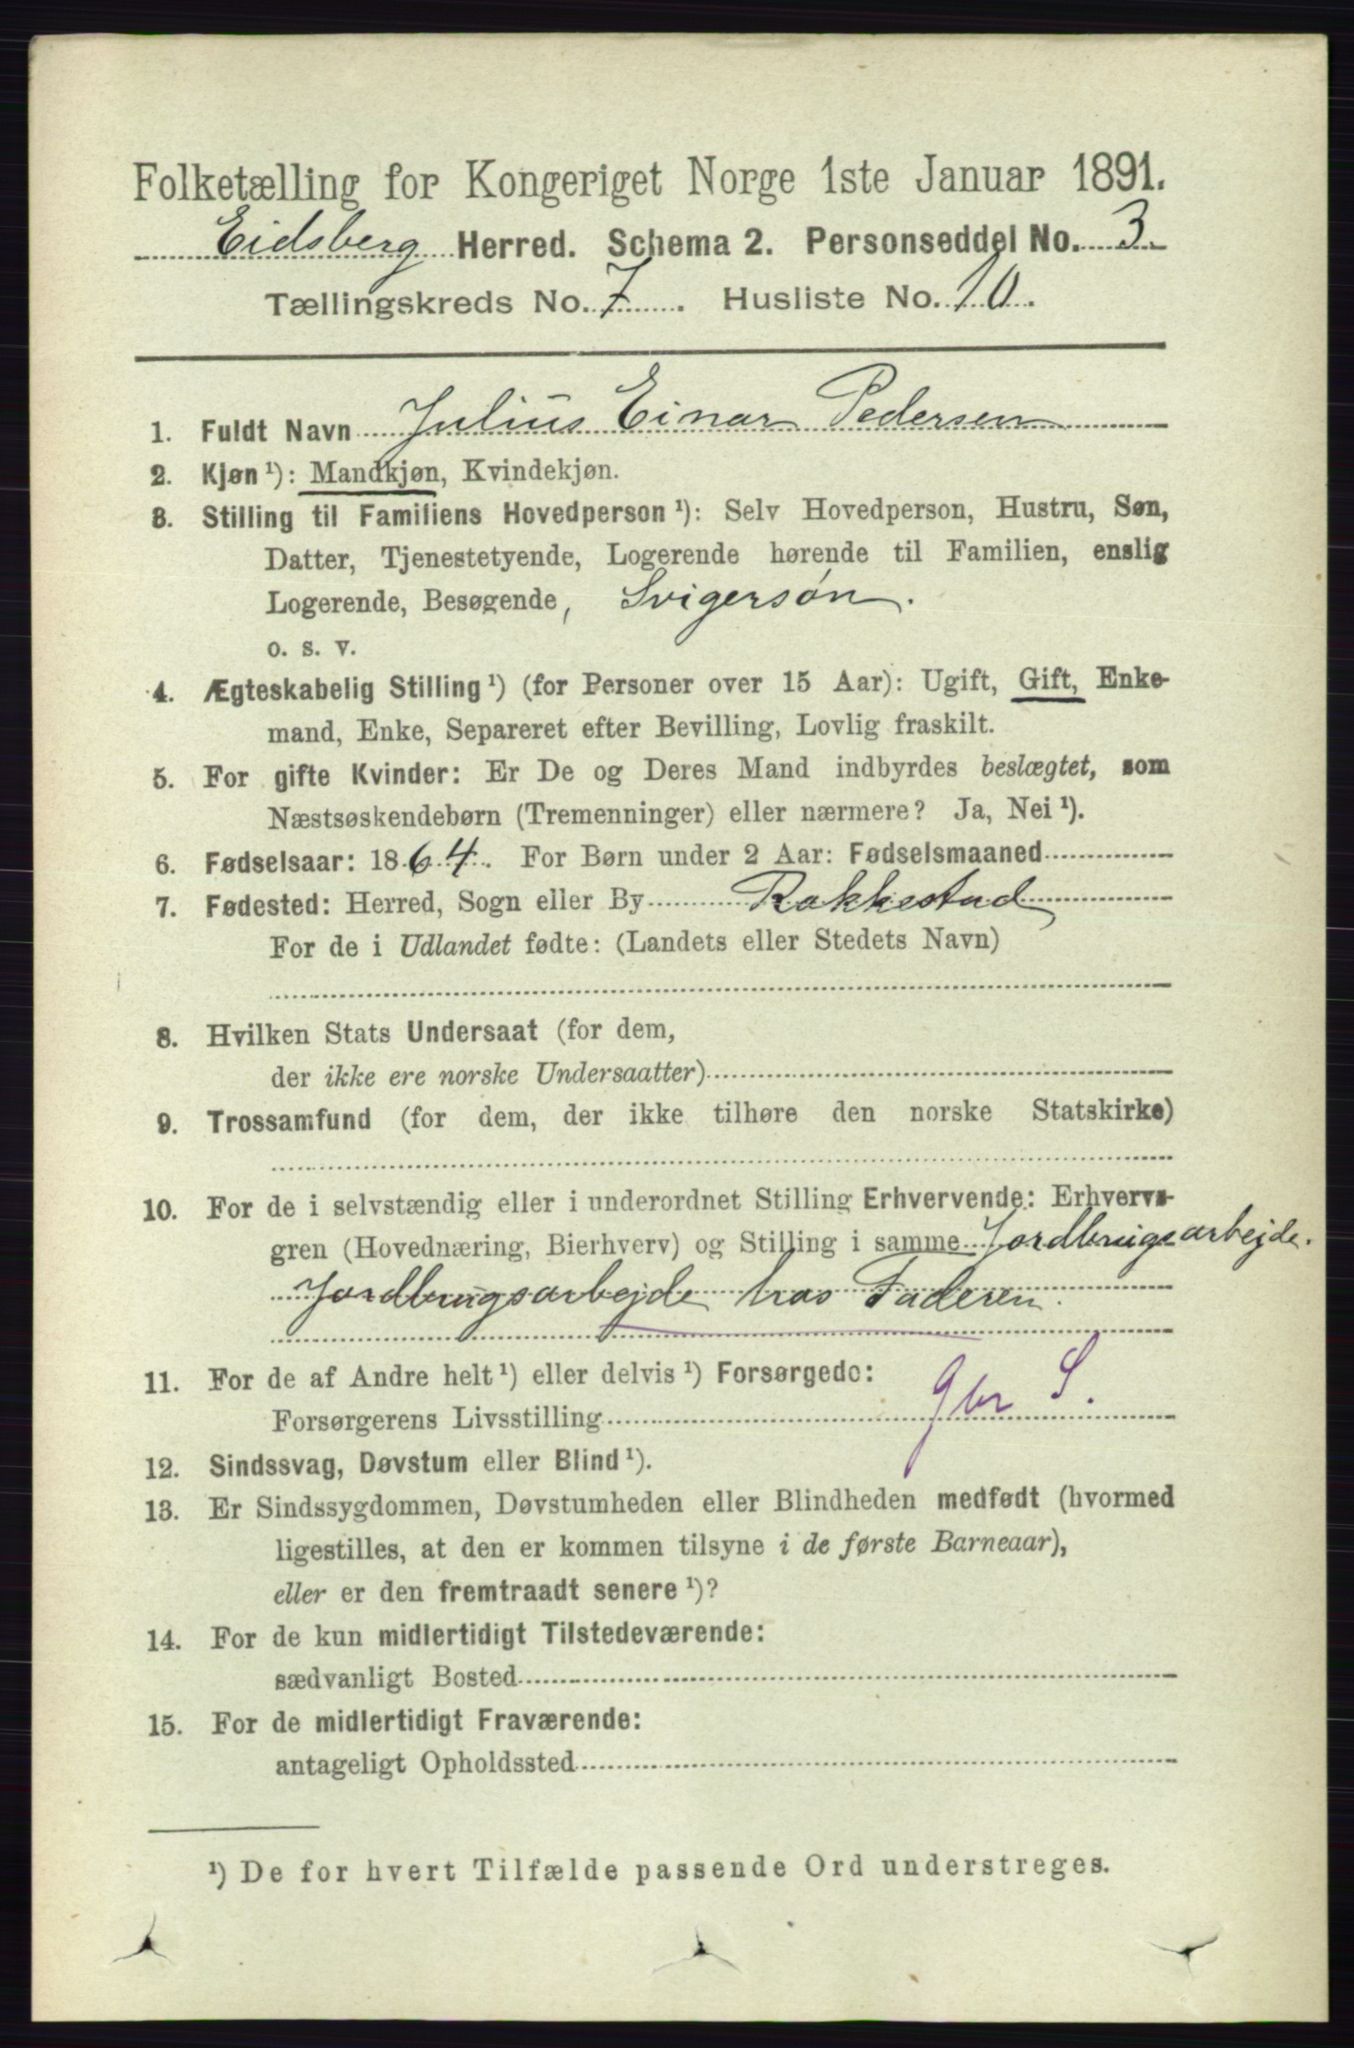 Folketælling for Kongeriget Norge 1ste Januar 1891.
Eidsberg Herred. Schema 2. Personseddel No. 3.
Tællingskreds No. 7. Husliste No. 10.
1. Fuldt Navn Julius Einar Pedersen
2. Kjøn ¹): Mandkjøn, Kvindekjøn.
3. Stilling til Familiens Hovedperson ¹): Selv Hovedperson, Hustru, Søn,
Datter, Tjenestetyende, Logerende hørende til Familien, enslig
Logerende, Besøgende, Svigersøn.
o. s. v.
4. Ægteskabelig Stilling ¹) (for Personer over 15 Aar): Ugift, Gift, Enke-
mand, Enke, Separeret efter Bevilling, Lovlig fraskilt.
5. For gifte Kvinder: Er De og Deres Mand indbyrdes beslægtet, som
Næstsøskendebørn (Tremenninger) eller nærmere? Ja, Nei ¹).
6. Fødselsaar: 1864. For Børn under 2 Aar: Fødselsmaaned
7. Fødested: Herred, Sogn eller By Rakkestad
For de i Udlandet fødte: (Landets eller Stedets Navn)
8. Hvilken Stats Undersaat (for dem,
der ikke ere norske Undersaatter)
9. Trossamfund (for dem, der ikke tilhøre den norske Statskirke)
10. For de i selvstændig eller i underordnet Stilling Erhvervende: Erhvervs-
gren (Hovednæring, Bierhverv) og Stilling i samme Jordbrugsarbejde.
Jordbrugsarbejde hos Faderen.
11. For de af Andre helt ¹) eller delvis ¹) Forsørgede:
Forsørgerens Livsstilling Gbr S.
12. Sindssvag, Døvstum eller Blind ¹).
13. Er Sindssygdommen, Døvstumheden eller Blindheden medfødt (hvormed
ligestilles, at den er kommen tilsyne i de første Barneaar),
eller er den fremtraadt senere ¹)?
14. For de kun midlertidigt Tilstedeværende:
sædvanligt Bosted
15. For de midlertidigt Fraværende:
antageligt Opholdssted
¹) De for hvert Tilfælde passende Ord understreges.